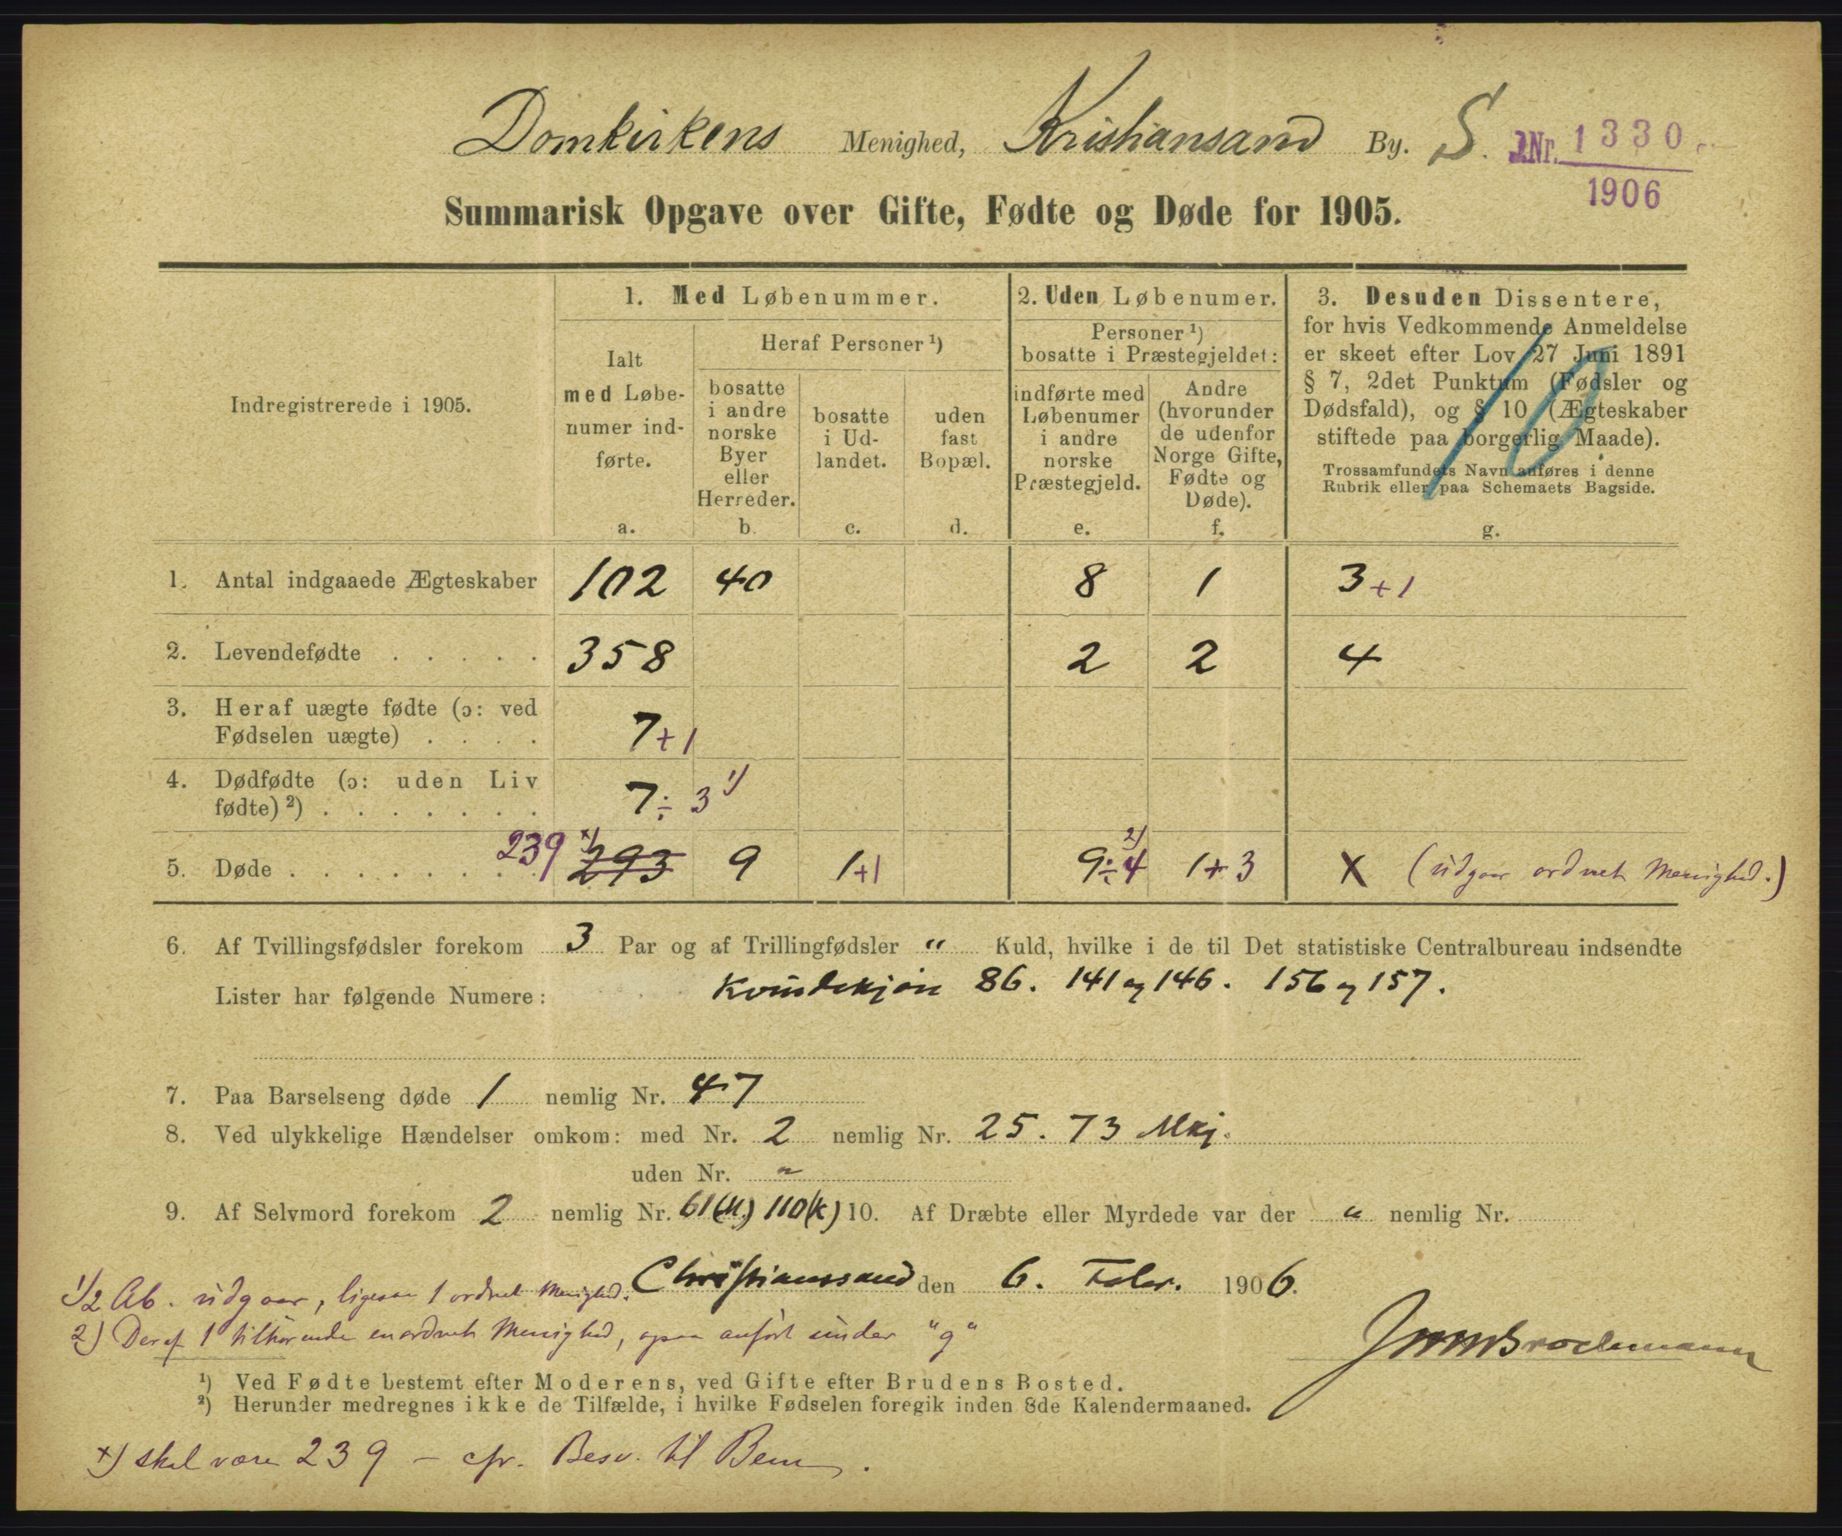 Domkirkens Menighed, Kristiansand By. S. J.Nr. 1330
1906
Summarisk Opgave over Gifte, Fødte og Døde for 1905.
Indregistrerede i 1905.
1. Med Løbenummer.
Ialt
med Løbe-
numer ind-
førte.
a.
Heraf Personer ¹)
bosatte
i andre
norske
Byer
eller
Herreder.
b.
bosatte
i Ud-
landet.
c.
uden
fast
Bopæl.
d.
2. Uden Løbenumer.
Personer ¹)
bosatte i Præstegjeldet:
indførte med
Løbenumer
i andre
norske
Præstegjeld.
e.
Andre
(hvorunder
de udenfor
Norge Gifte,
Fødte og
Døde).
f.
3. Desuden Dissentere,
for hvis Vedkommende Anmeldelse
er skeet efter Lov 27 Juni 1891
§ 7, 2det Punktum (Fødsler og
Dødsfald), og § 10 (Ægteskaber
stiftede paa borgerlig Maade).
Trossamfundets Navn anføres i denne
Rubrik eller paa Schemaets Bagside.
g.
10
1. Antal indgaaede Ægteskaber 102 40 8 1 3 + 1
2. Levendefødte . . . . . 358 2 2 4
3. Heraf uægte fødte (ɔ: ved
Fødselen uægte) . . . . 7 + 1
4. Dødfødte (ɔ: uden Liv
fødte) ²) . . . . . . . 7 ÷ 3 ¹)
5. Døde . . . . . . . . 239 ×) 293 9 1+1 9 ÷ 4 ²) 1 + 3 X (udgaar ordnet Menighed.)
6. Af Tvillingsfødsler forekom 3 Par og af Trillingfødsler " Kuld, hvilke i de til Det statistiske Centralbureau indsendte
Lister har følgende Numere: Kvindekjøn 86. 141 og 146. 156 og 157.
7. Paa Barselseng døde 1 nemlig Nr. 47
8. Ved ulykkelige Hændelser omkom: med Nr. 2 nemlig Nr. 25. 73 Mkj.
uden Nr. "
9. Af Selvmord forekom 2 nemlig Nr. 61 (M.) 110 (K) 10. Af Dræbte eller Myrdede var der " nemlig Nr.
Christianssand den 6. Febr. 1906.
1) 2 Ab. udgaar, ligesaa 1 ordnet Menighed.
2) Deraf 1 tilhørende en ordnet Menighed, ogsaa anført under "g"
Brockmann
¹) Ved Fødte bestemt efter Moderens, ved Gifte efter Brudens Bosted.
²) Herunder medregnes ikke de Tilfælde, i hvilke Fødselen foregik inden 8de Kalendermaaned.
×) skal være 239 - cfr. Besv. til Bem.